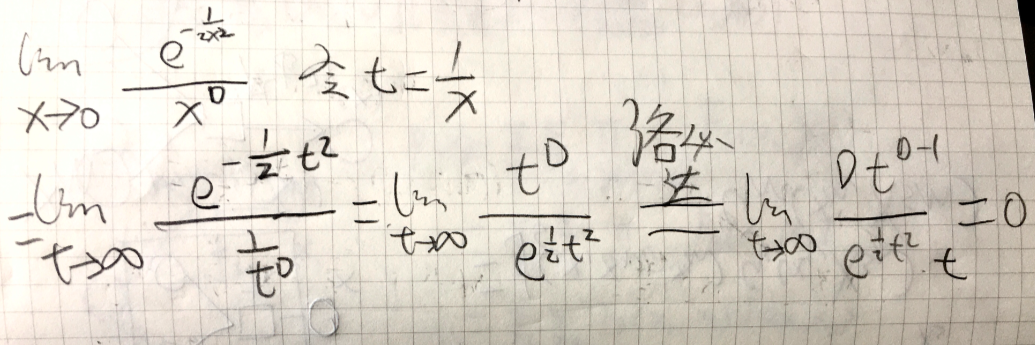 lim_{x→0} \frac{e^{-\frac{1}{2x^2}}}{x^D} 令 t=\frac{1}{x}
=lim_{t→∞} \frac{e^{-\frac{1}{2}t^2}}{\frac{1}{t^D}} = lim_{t→∞} \frac{t^D}{e^{\frac{1}{2}t^2}} \xlongequal{洛必达} lim_{t→∞} \frac{Dt^{D-1}}{e^{\frac{1}{2}t^2} t} = 0